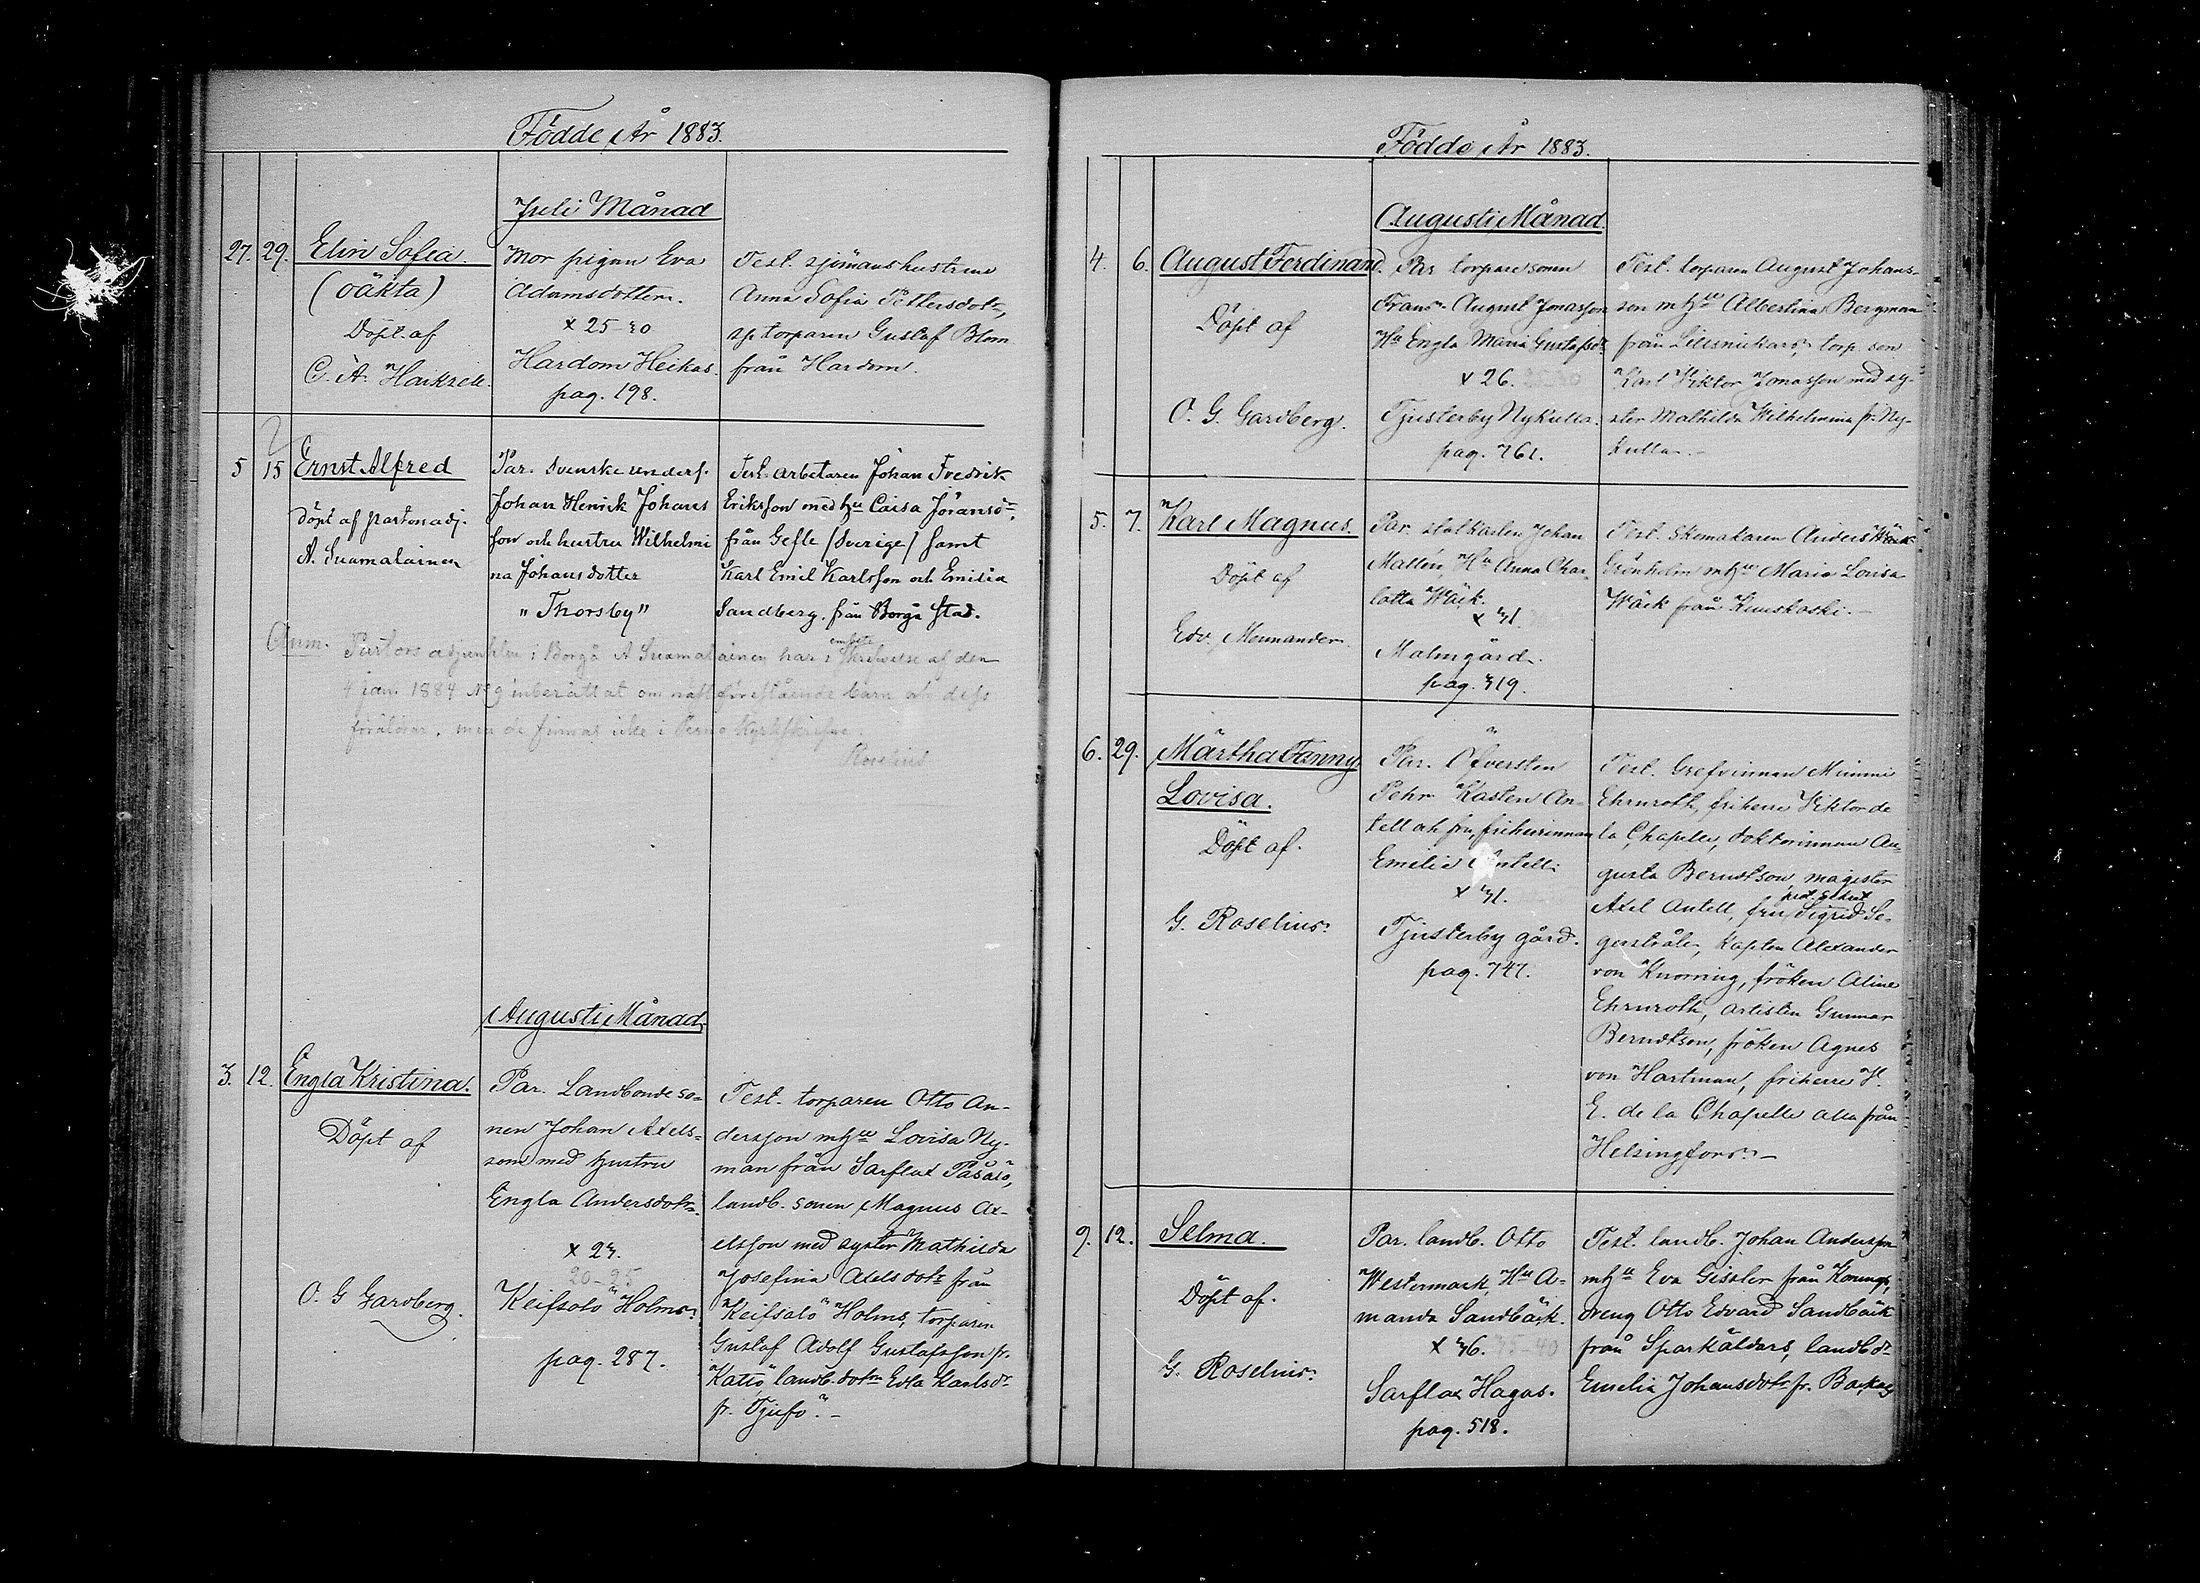 Födde År 1883.
Juli Månad
27. 29. Elin Sofia.
(oäkta)
Döpt af
Mor pigan Eva
Adamsdotter.
x 25-30
Hardom Heikas.
pag. 198.
Test. sjömanshustrun
Anna Sofia Pettersdotr,
torparen Gustaf Blom
från Hardom.
5 15 Ernst Alfred
Döpt af pastorsadj.
A. Suamalainen
Par. Svenske unders.
Johan Henrik Johans
son och hustru Wilhelmi
na Johansdotter
"Thorsby"
Test. arbetaren Johan Fredrik
Eriksson med hu Caisa Jöransdr,
från Gefle (Sverige) samt
Karl Emil Karlsson och Emilia
Sandberg, från Borgå stad.
Anm. Pastors adjunkten i Borgå A Suamalainen har i embets skrifvelse af den
4 jan. 1884 No 9 inberättat om näst förestående barn och dess
föräldrar, men de finnas icke i Perno kyrkskrifne.
Roselius
Augusti Månad
3. 12. Engla Kristina.
Döpt af
O. G Gardberg.
Par. Landbonde so-
nen Johan Axels-
son med hustru
Engla Andersdotr.
x 23.
20-25
Keifsalö Holms.
pag. 287.
Test. torparen Otto An-
dersson mhu Lovisa Ny-
man från Sarflax
landb. sonen Magnus Ax-
elsson med syster Mathilda
Josefina Axelsdotr från
Keifsalö Holms, torparen
Gustaf Adolf Gustafsson fr.
landb. dotrn Edla Karlsdr
fr. Tjufö.-
Födde År 1883.
Augusti Månad.
4. 6. August Ferdinand.
Döpt af
O. G. Gardberg.
Par torpare sonen
Frans August Jonasson
Hu Engla Maria Gustafsdr
x 26.
Tjusterby Nykulla.
pag. 761.
Test. torparen August Johans-
son mhu Albertina Bergman
från Lillsnickars, torp. son
Karl Viktor Jonasson med sy-
ster Mathilda Wilhelmina fr. Ny-
kulla.-
5. 7. Karl Magnus.
Döpt af
Edv. Meunander
Par. statkarlen Johan
Mattén, Hu Anna Char-
lotta Wäck.
x 31.
Malmgård.
pag. 319.
Test. skomakaren Anders
Grönholm mhu Maria Lovisa
Wäck från Kuuskoski.-
6. 29. Märtha Fanny
Lovisa.
Döpt af.
G. Roselius.
Par. Öfversten
Pehr Kasten An-
tell och fru, friherrinnan
Emilie Antell.
x 31.
Tjusterby gård.
pag. 747.
Test. Grefvinnan Mimmi
Ehrnroth, friherre Viktor de
la Chapelle, doktorinnan Au-
gusta Berndtson, magister
Axel Antell, fru Sigrid Se-
gerstråle, Kapten Alexander
von Knorring, fröken Aline
Ehrnroth, artisten Gunnar
Berndtson, fröken Agnes
von Hartman, friherre H.
E. de la Chapelle alla från
Helsingfors.-
9. 12. Selma.
Döpt af.
G. Roselius.
Par. landb. Otto
Westermark, Hu A-
manda Sandbäck.
x 36. 35-40
Sarflax Hagas.
pag. 518.
Test. landb. Johan Andersson
mhu Eva Gissler från
dreng Otto Edvard Sandbäck
från Sparkåldars, landb dr
Emelia Johansdotr fr. Backas